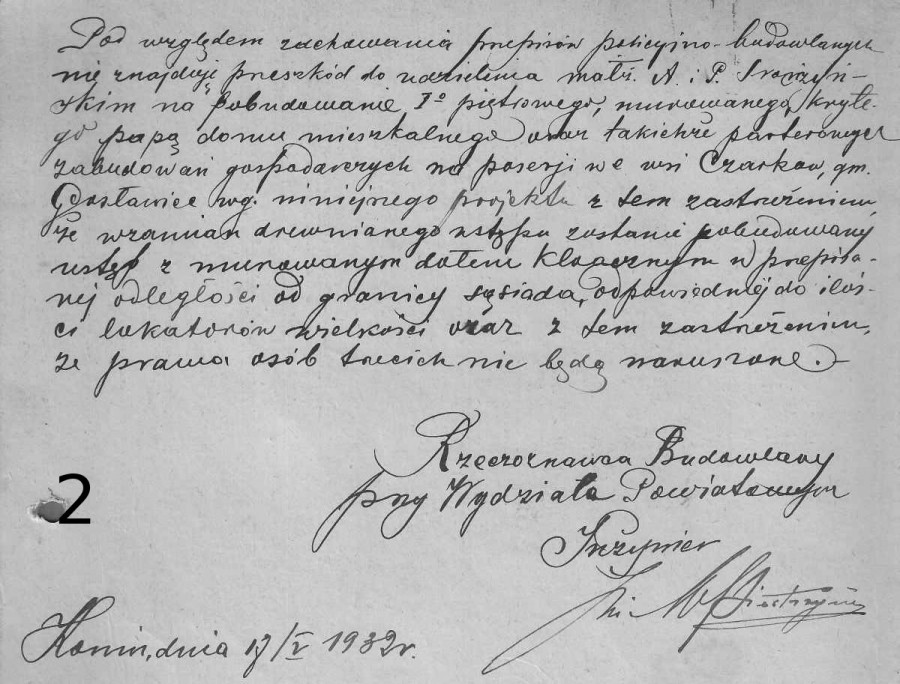 Pod względem zachowania przepisów policyjno-budowlanych
nie znajduję przeszkód do udzielenia małż. A. i P.
skim na pobudowanie I° piętrowego, murowanego, kryte-
go papą domu mieszkalnego oraz takichże parterowych
zabudowań gospodarczych na posesji we wsi Czarków, gm.
Gosławice wg. niniejszego projektu z tem zastrzeżeniem,
że wzamian drewnianego ustępu zostanie pobudowany
ustęp z murowanym dołem kloacznym w przepisa-
nej odległości od granicy sąsiada, odpowiedniej do iloś-
ci lokatorów wielkości oraz z tem zastrzeżeniem,
że prawa osób trzecich nie będą naruszone.
Rzeczoznawca Budowlany
przy Wydziale Powiatowym
Inżynier
2
Konin, dnia 17/V 1932 r.